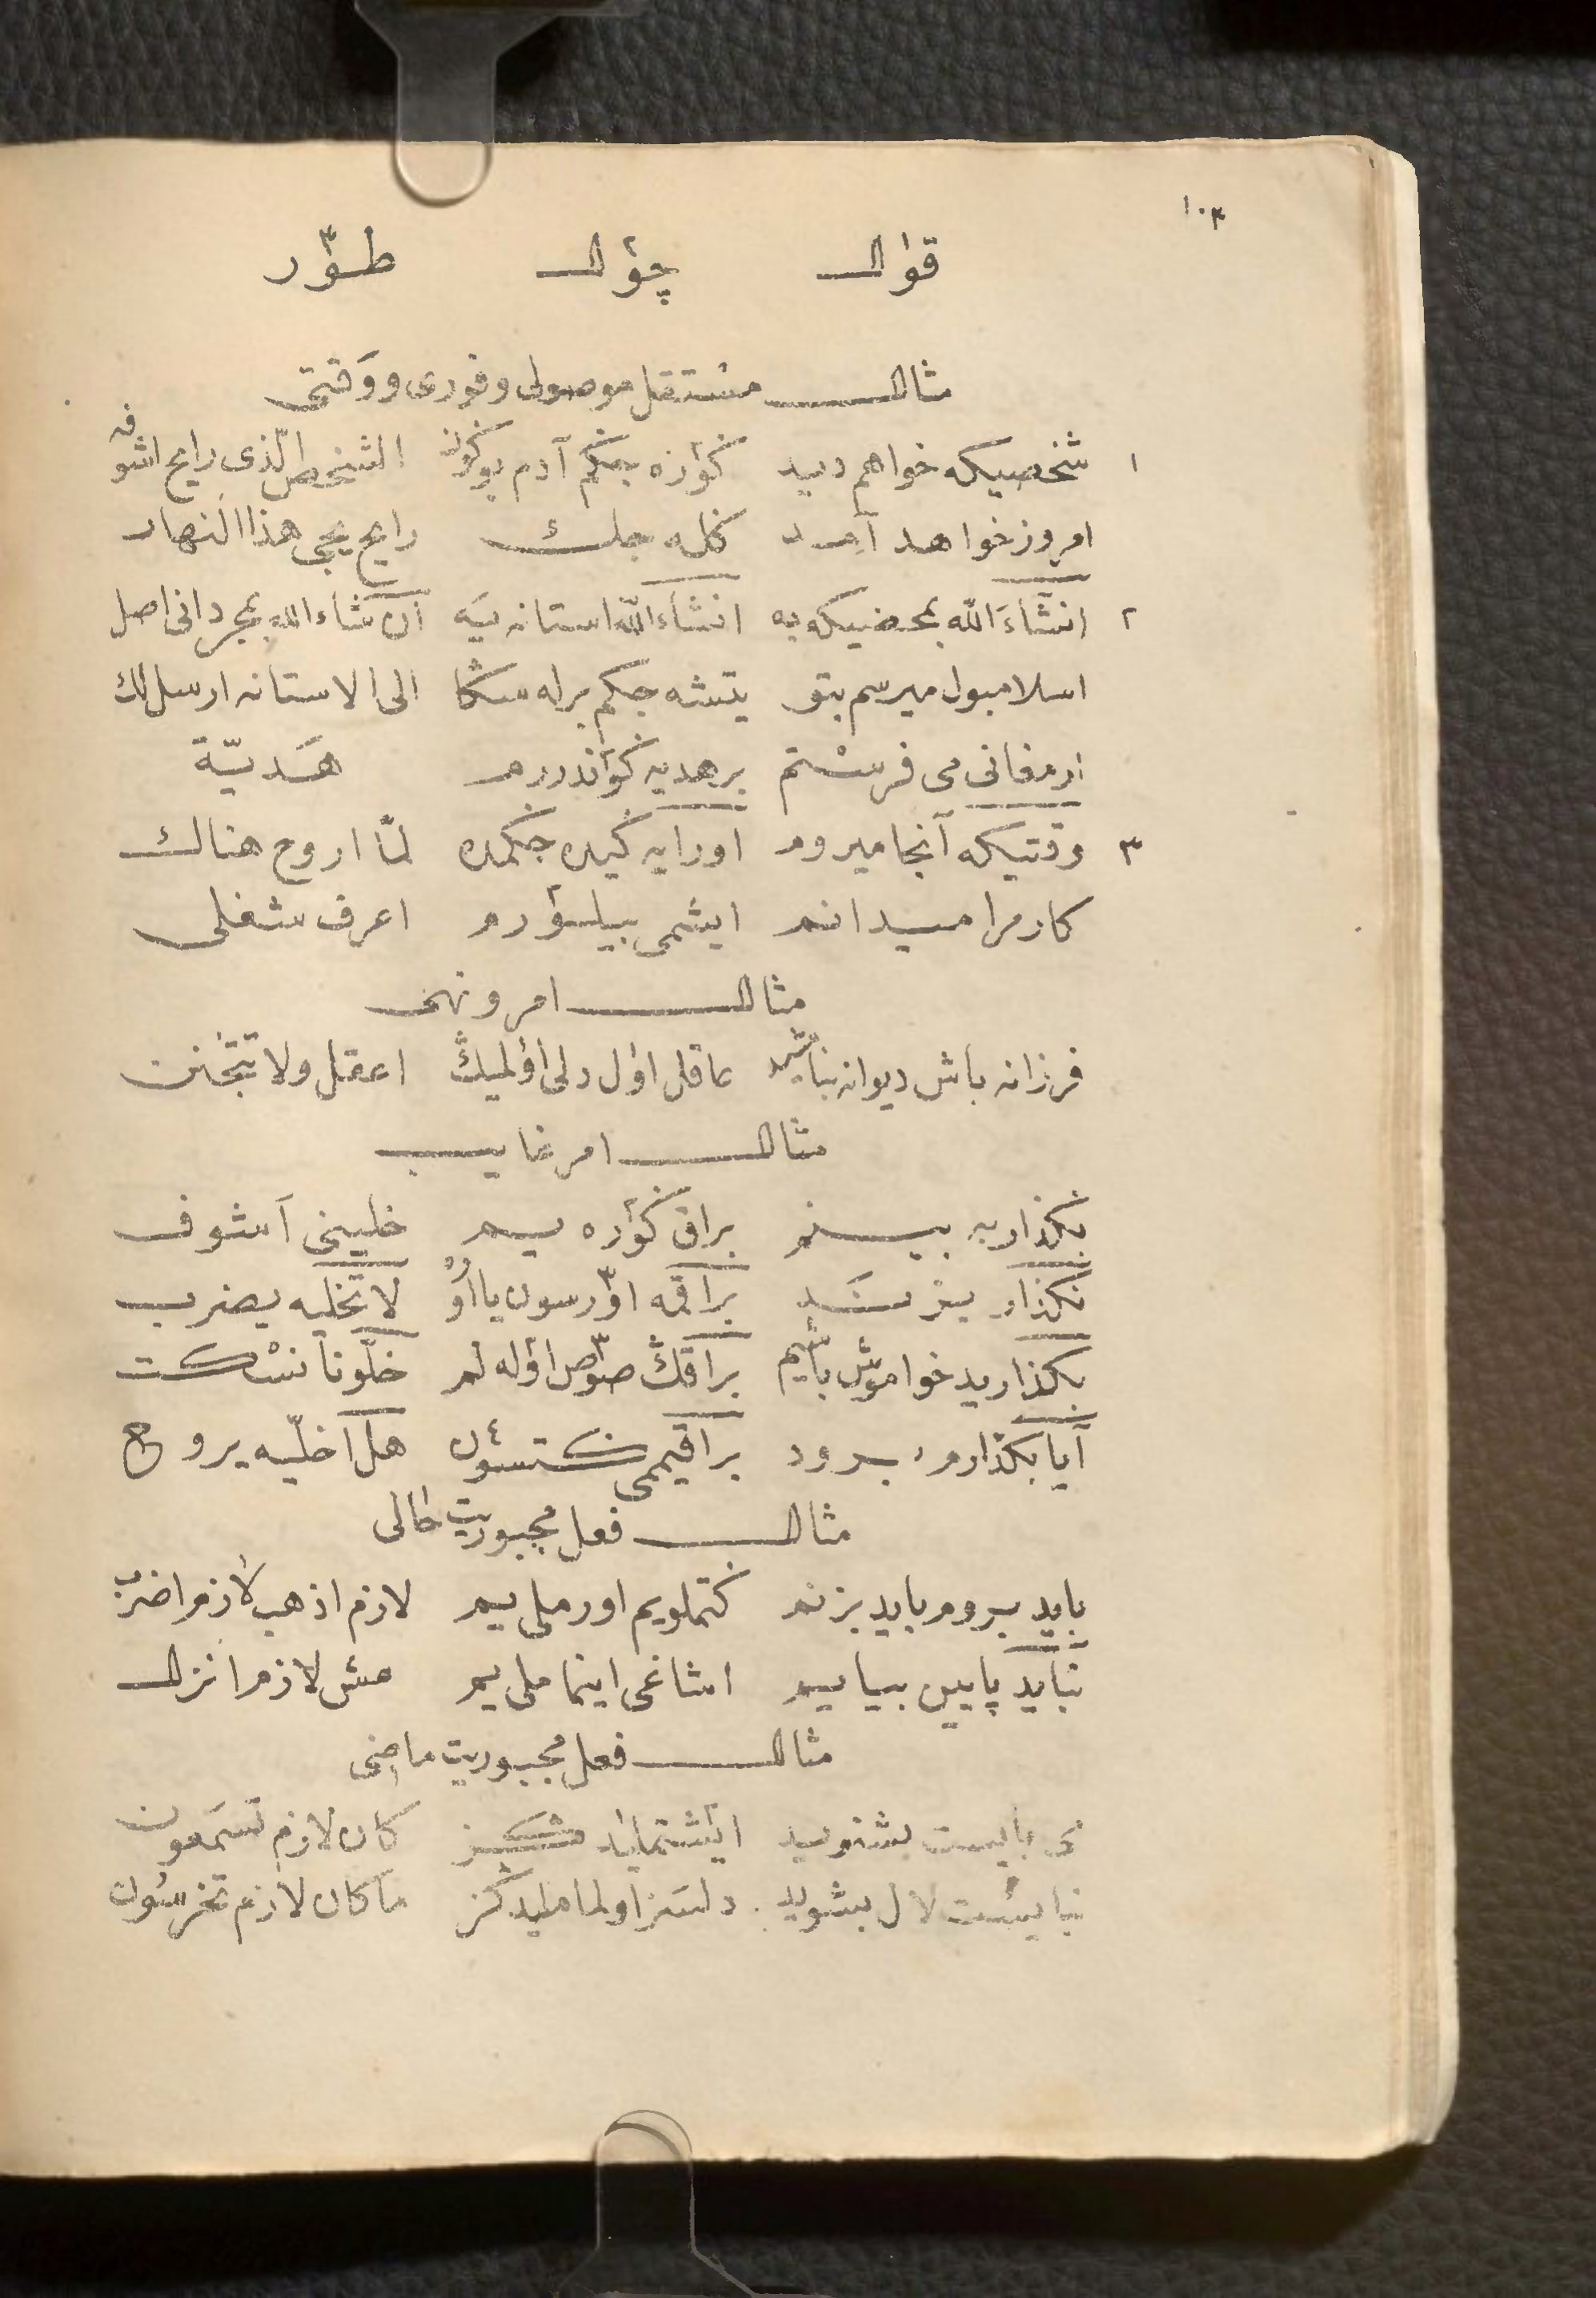 ١٠٣
قوٰال چؤٰل طؤّر
مثال مستقبل موصولی و فوری و وَقتی
١ شخصیکه خواهم دید کؤره جکم آدم بوکون الشخص الّذی رایح اشوفه
امروز خواهد آمد کله جك رایح یجی هذا النهار
٢ انشآءَ الله بمحضیکه به انشآءَ الله استانه یَه ان شاء الله بمجرد انی اصل
اسلامبول میرسم بتو یتشه جکم برله سڭا الی الاستانه ارسل لك
ارمغانی می فرستم بر هدیه کؤندررم هَدیّة
٣ وقتیکه آنجا میروم اورایه کیده جکمده لمّا اروح هنالك
کارم را میدانم ایشمی بیلؤرم اعرف شغلی
مثال امر و نهی
فرزانه باش دیوانه نباشید عاقل اوٰل دلی اؤلمیڭ اعقل ولا تتجَنن
مثال امر غایب
بگذار به بینم براق کؤره یم خلینی آشوف
نگذار بزنَد براقمه اؤرسون یا اُو لا تخلیه یضرب
بگذارید خواموش باشیم براقڭ صؤص اؤله لم خلّونا نسْکت
آیا بگذارم برود براقیممی کتسؤن هل آخلّیه یروح
مثال فعل مجبوریت حالی
باید بروم باید بزنم کتملویم اورملی یم لازم اذهب لازم اضرب
نباید پایین بیایم اشاغی اینمامَلی یم مش لازم انزل
مثال فعل مجبوریت ماضی
می بایست بشنوید ایشتملیدکز کان لازم تسَمعون
نبایست لال بشوید دلسَز اولماملیدکز ما کان لازم تخرسُون